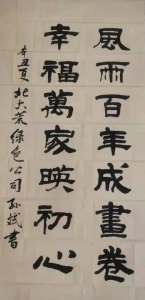 風雨百年成畫卷
幸福萬家映初心
辛丑夏北大荒绿色公司孙斌書